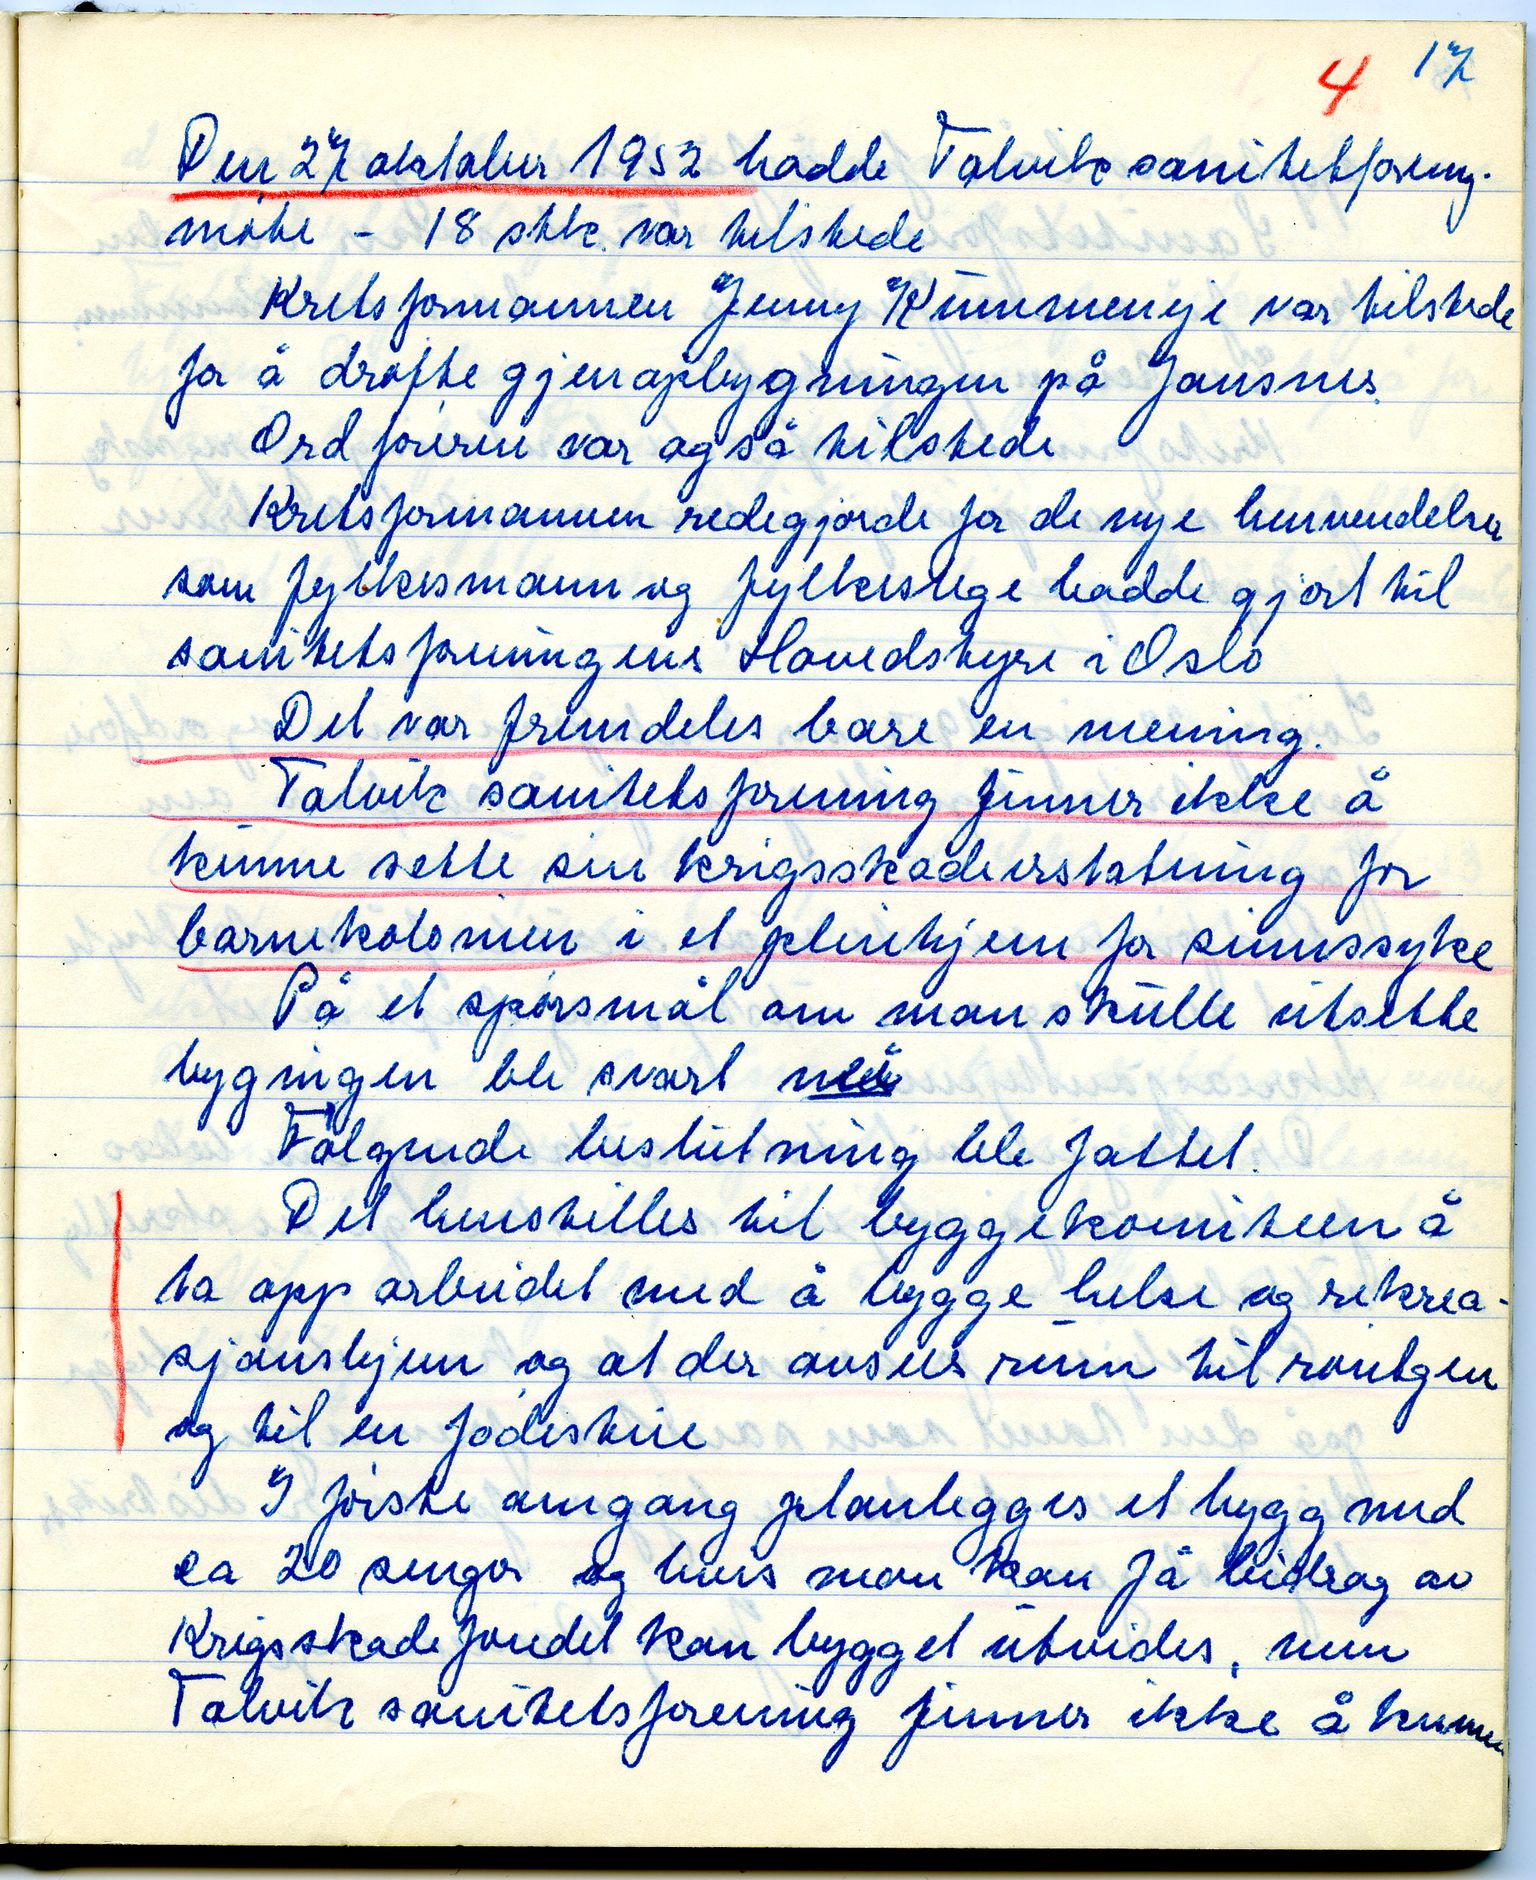 4 17
Den 27 oktober 1952 hadde Talvik sanitetsforeng.
møte - 18 stk. var tilstede
Kretsformannen Jenny Kummeneje var tilstede
for å drøfte gjenopbygningen på Jansnes.
Ordføreren var også tilstede
Kretsformannen redegjorde for de nye henvendelser
som fylkesmann og fylkeslege hadde gjort til
sanitetsforeningens Hovedstyre i Oslo
Det var fremdeles bare en mening.
Talvik sanitetsforening finner ikke å
kunne sette sin krigsskadeerstatning for
barnekolonien i et pleiehjem for sinnssyke
På et spørsmål om man skulle utsette
bygningen ble svart nei
Følgende beslutning ble fattet.
Det henstilles til byggekomiteen å
ta opp arbeidet med å bygge helse og rekrea-
sjonshjem og at der avsees rum til røntgen
og til en fødestue
I første omgang planlegges et bygg med
ca 20 senger og hvis man kan få bidrag av
Krigsskadefondet kan bygget utvides, men
Talvik sanitetsforening finner ikke å kunne